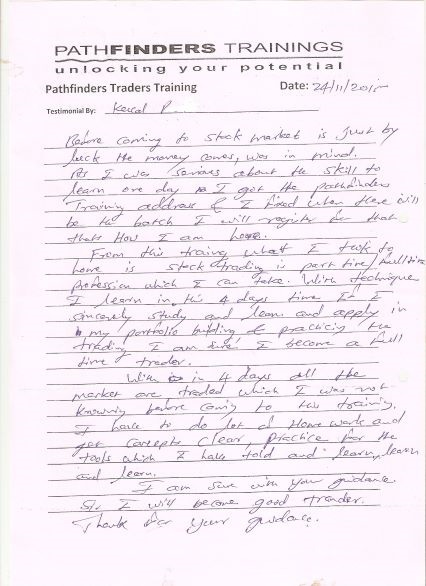 PATHFINDERS TRAININGS
unlocking your potential
Pathfinders Traders Training
Date: 24/11/2015
Testimonial By: P
Before coming to stock market is Just by
luck the money comes, was in mind.
As I was serious about the skill to
learn one day I got the pathfinders
Training address & I fixed when there will
be the batch I will register for that
thats How I am here.
From this traing what I took to
home is stock trading is part time / full time
profession which I can take. With technique
I learn in this 4 days time If I
sincerely study and learn and apply in
my portfolio building & practicing the
trading I am sure I become a full
time trader.
With in 4 days all the
market are traded which I was not
knowing before coming to this training.
I have to do lot of Home work and
get concepts clear, practice for the
tools which I have told and learn, learn
and learn.
I am sure with your guidance
Sir I will become good trader.
Thank for your guidance.